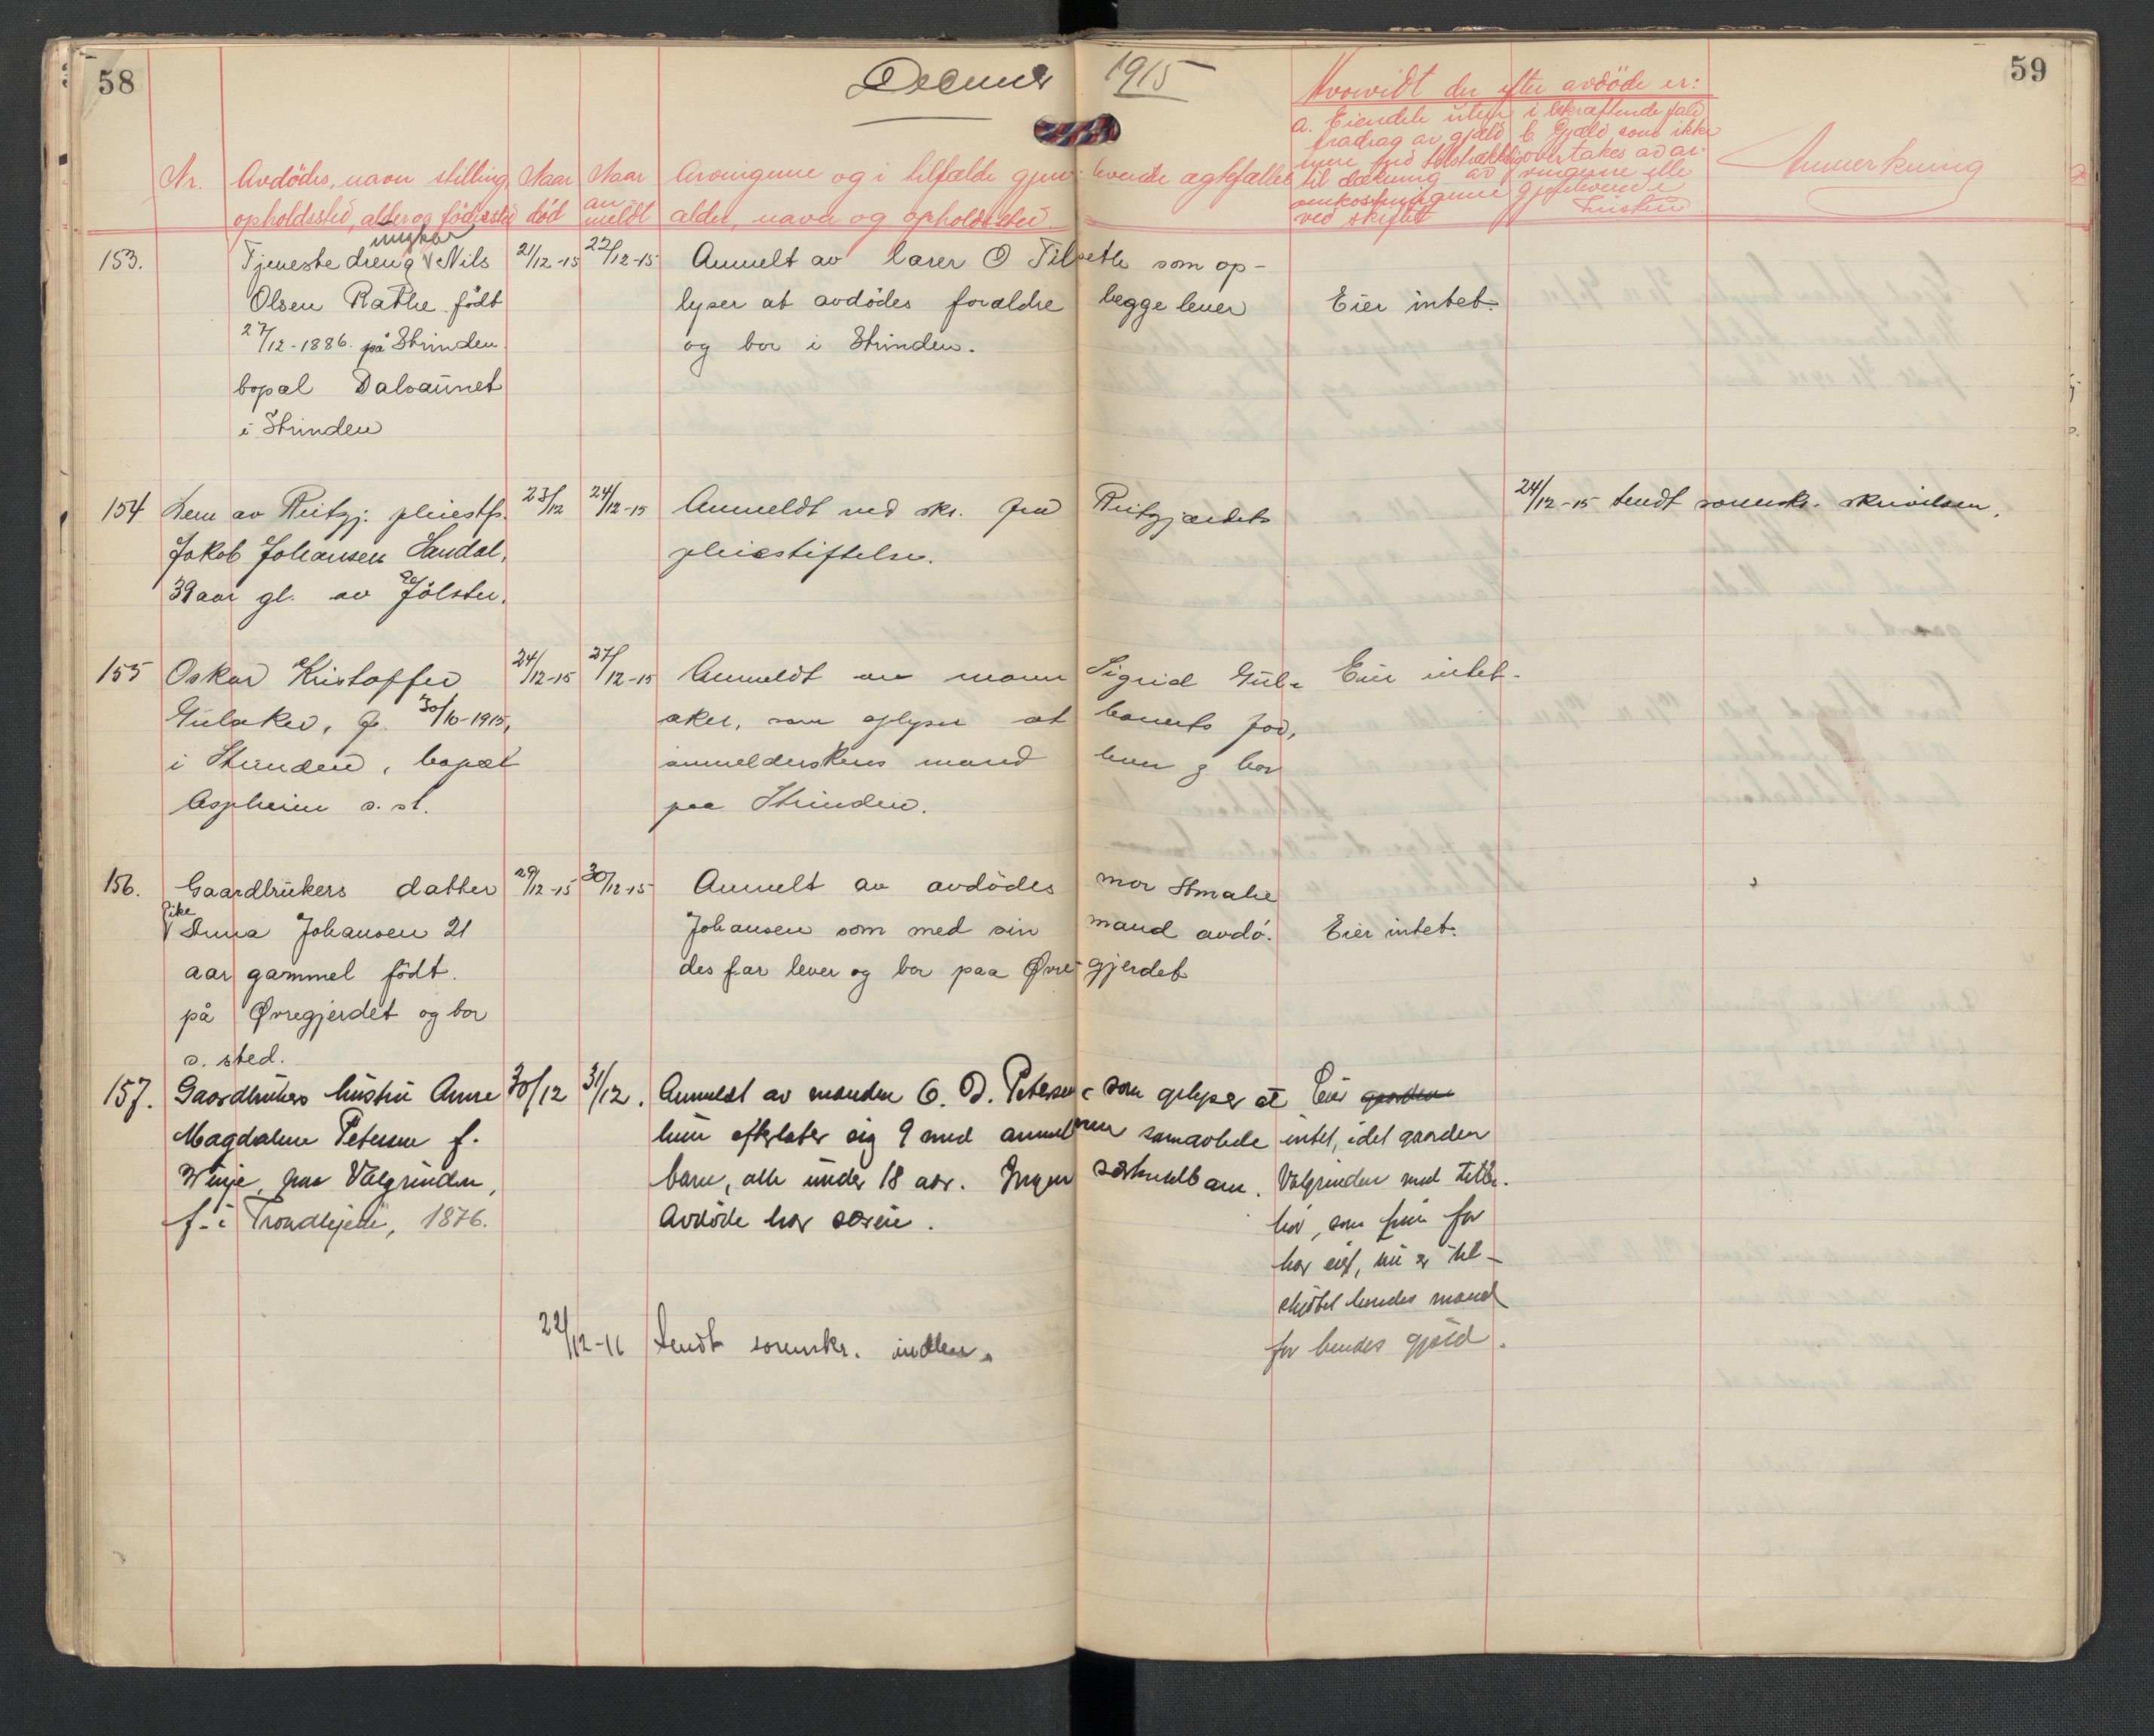 58
59
Decemb 1915
Nr.
Avdödes, navn stilling,
opholdssted, alder og födested
Naar
död
Naar
an-
meldt
Arvingerne og i tilfælde gjen- levende ægtefælles
alder, navn og opholdssted.
Hvorvidt der efter avdöde er:
a. Eiendele uten
fradrag av gjæld
til dækning av
omkostningerne
ved skiftet
i bekræftende fald
b Gjæld, som ikke
overtakes av ar-
vingerne eller
gjenlevende
Anmerkning
153.
ungkar
Tjenestedreng Nils
Olsen Rathe födt
27/12-1886. på Strinden
bopæl Dalsaunet
i Strinden
21/12-15
22/12-15
Anmelt av lærer O Tilseth som op-
lyser at avdödes forældre begge lever
og bor i Strinden.
Eier intet.
154
Lem av Reitgj. pleiestf.
Jakob Johansen Sandal,
39 aar gl. av Jölster.
23/12
24/12-15
Anmeldt ved skr. fra Reitgjærdets
pleiestiftelse.
24/12-15 Sendt sorenskr. skrivelsen.
155
Oskar Kristoffer
Gulaker, f. 30/10-1915,
i Strinden, bopæl
Aspheim s. st.
24/12-15
27/12-15
Anmeldt av moren Sigrid Gul-
aker, som oplyser at barnets far,
anmelderskens mand lever og bor
paa Strinden.
Eier intet.
156.
Gaardbrukers datter
Pike
Anna Johansen 21
aar gammel födt.
på Øvregjerdet og bor
s. sted.
29/12-15
30/12-15
Anmelt av avdödes mor Amalie
Johansen som med sin mand avdö-
des far lever og bor paa Øvre gjerdet
Eier intet.
157.
Gaardbrukers hustru Anne
Magdalene Petersen f.
Winje, paa Valgrinden,
f. i Trondhjem, 1876.
30/12
31/12.
Anmeldt av manden O. D. Petersen, som oplyser at
hun efterlater sig 9 med anmelderen samavlede
barn, alle under 18 aar. Ingen særkuldbarn.
Avdöde har særeie.
Eier gaarden
intet, idet gaarden
Valgrinden med tilbe-
hör, som hun för
har eiet, nu er til-
skjötet hendes mand
for hendes gjæld.
22/12-16 Sendt sorenskr. indber.